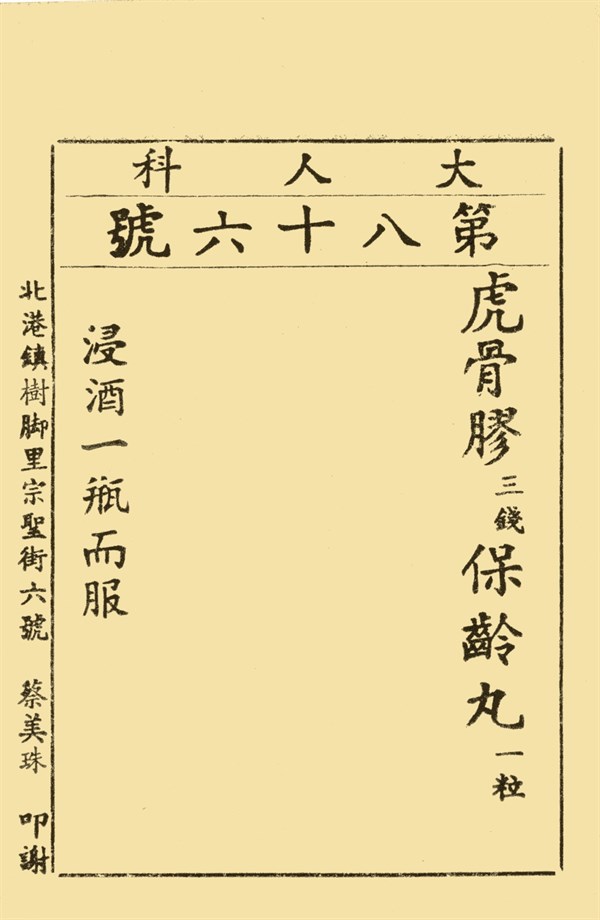 大人科
第八十六號
虎骨膠三錢保齡丸一粒
浸酒一瓶而服
北港鎮樹脚里宗聖街六號　蔡美珠　叩謝